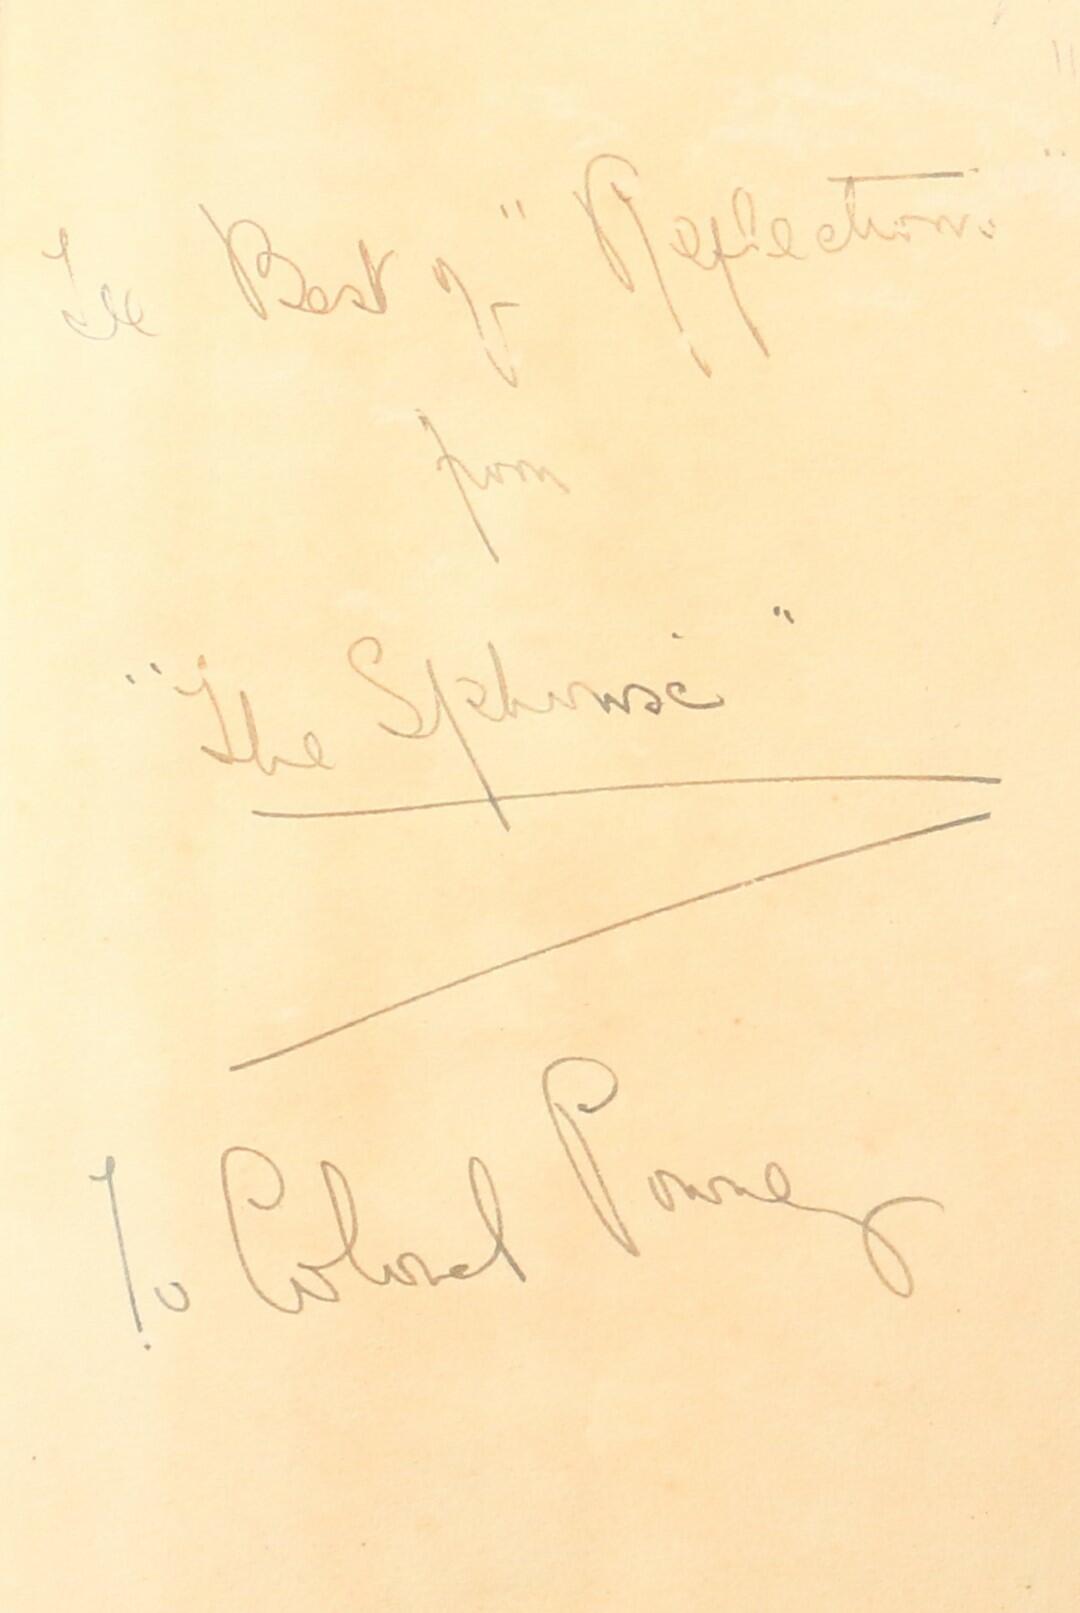 The Best of "Reflections"
from
"The Sphinx"
To Colonel